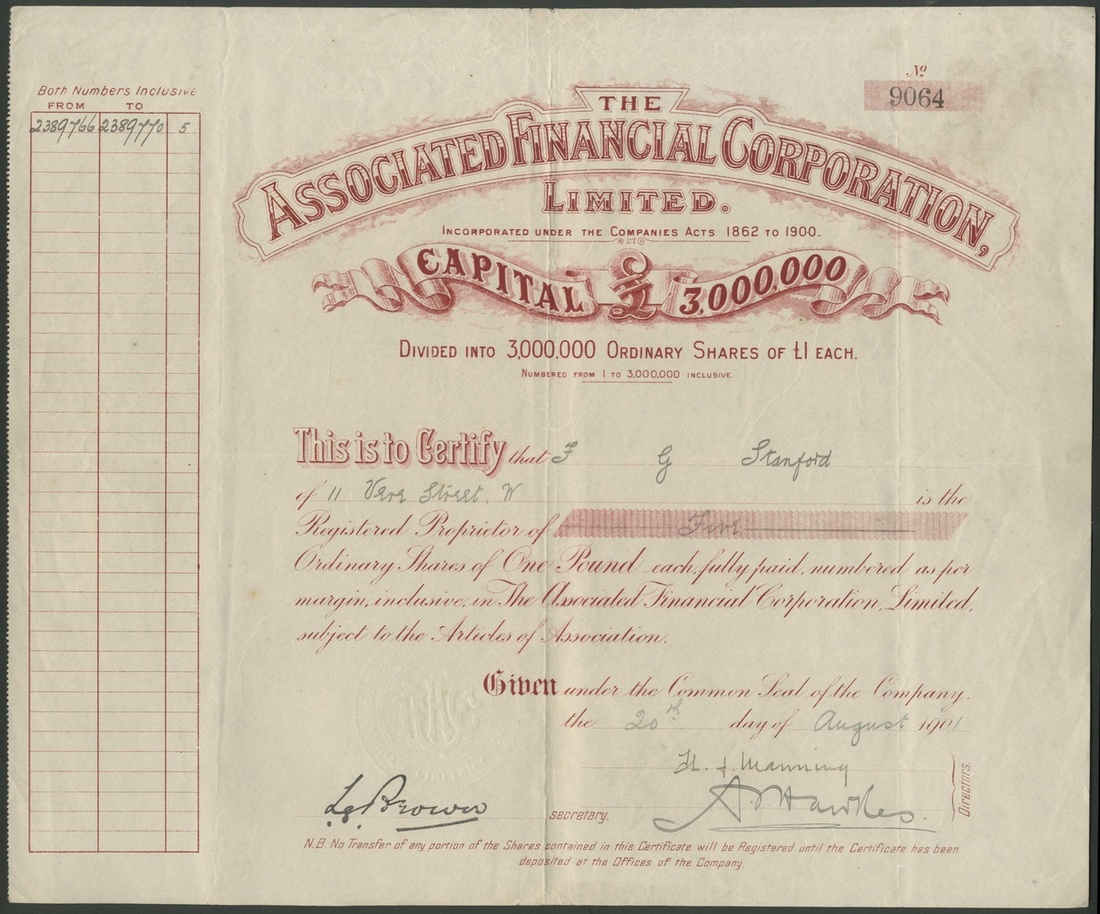 Both Numbers Inclusive
FROM TO
2389766 2389770 5
No
9064
THE
ASSOCIATED FINANCIAL CORPORATION,
LIMITED.
INCORPORATED UNDER THE COMPANIES ACTS 1862 TO 1900.
CAPITAL £ 3,000,000
DIVIDED INTO 3,000,000 ORDINARY SHARES OF £1 EACH.
NUMBERED FROM 1 TO 3,000,000 INCLUSIVE.
This is to Certify that F G Stanford
of 11 Vere Street. W is the
Registered Proprietor of Five
Ordinary Shares of One Pound each, fully paid, numbered as per
margin, inclusive, in The Associated Financial Corporation, Limited,
subject to the Articles of Association.
Given under the Common Seal of the Company.
the 20th day of August 1901
Manning
Brown secretary. A. Hawkes. Directors.
N.B. No Transfer of any portion of the Shares contained in this Certificate will be Registered until the Certificate has been
deposited at the Offices of the Company.